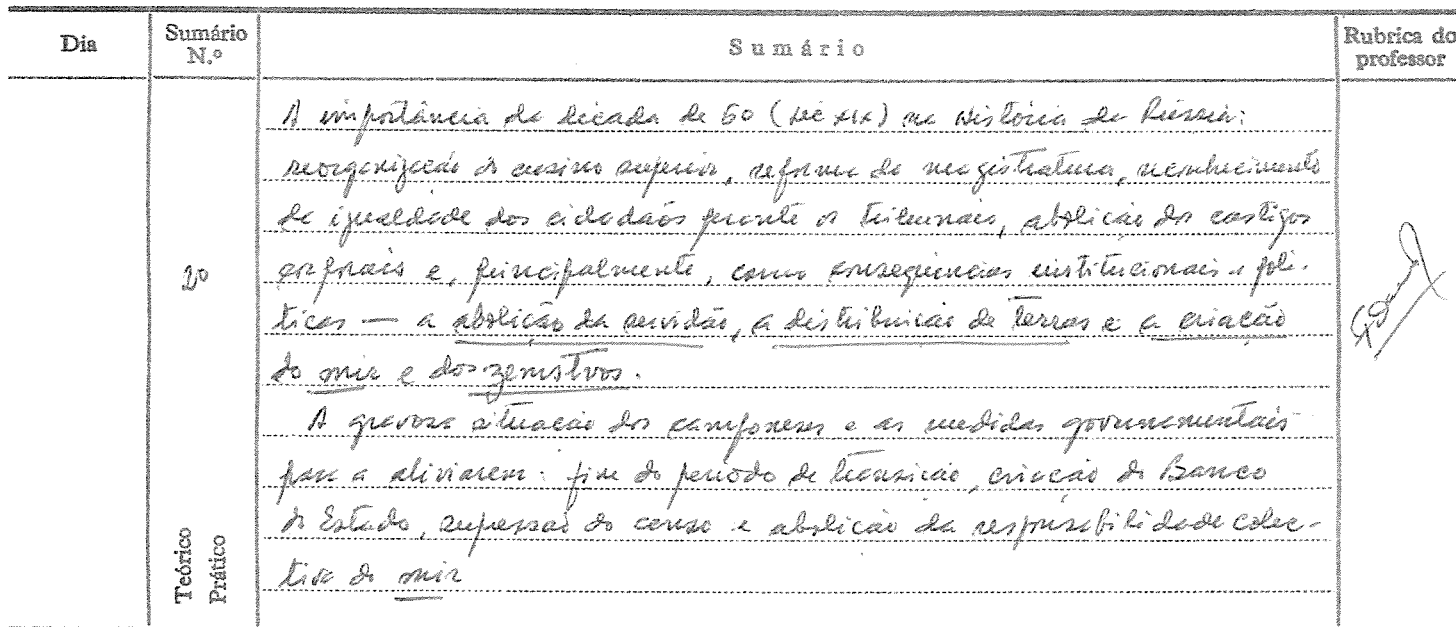 Dia
Sumário N.º
Sumário
Rubrica do professor
A importância da década de 60 (séc XIX) na História da Rússia:
reorganização do ensino superior, reforma da magistratura, reconhecimento
da igualdade dos cidadãos perante os tribunais, abolição dos castigos
corporais e, principalmente, como consequências institucionais e polí-
ticas — a abolição da servidão, a distribuição de terras e a criação
do mir e dos zemstvos.
A gravosa situação dos camponeses e as medidas governamentais
para a aliviarem: fim do período de transição, criação do Banco
do Estado, supressão do censo e abolição da responsabilidade colec-
tiva do mir
2º
Teórico
Prático